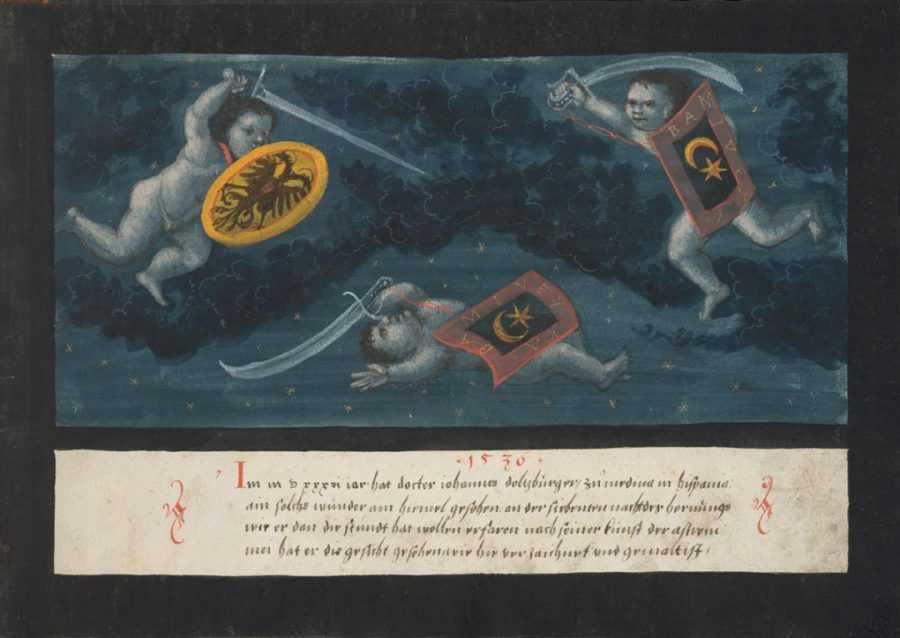 BAMIVEY
BAMIVEY
· 1536 ·
Im m v xxxvi iar hat docter iohannes dolzbinger zu medina in hispania
ain solchs wunder am himel gesehen an der sibenten nacht der hornungs
wie er dan die stundt hat wellen erfaren nach seiner kunst der astrem
mei hat er dis gesicht gesehen wie hie vor zaichnet und gemalt ist